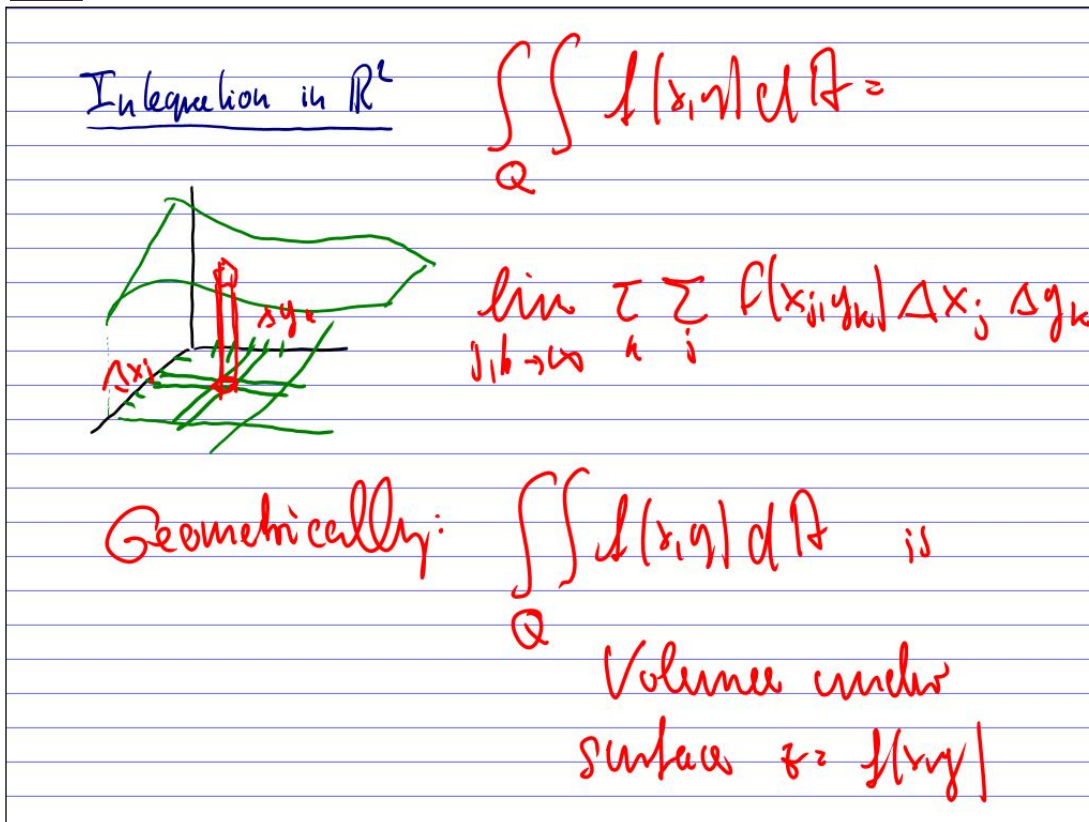 Integration in ℝ²
∬_Q f(x,y) dA =
Δy_k
Δx_j
lim_{j,k→∞} Σ_k Σ_j f(x_j, y_k) Δx_j Δy_k
Geometrically: ∬_Q f(x,y) dA is
Volume under
surface z = f(x,y)